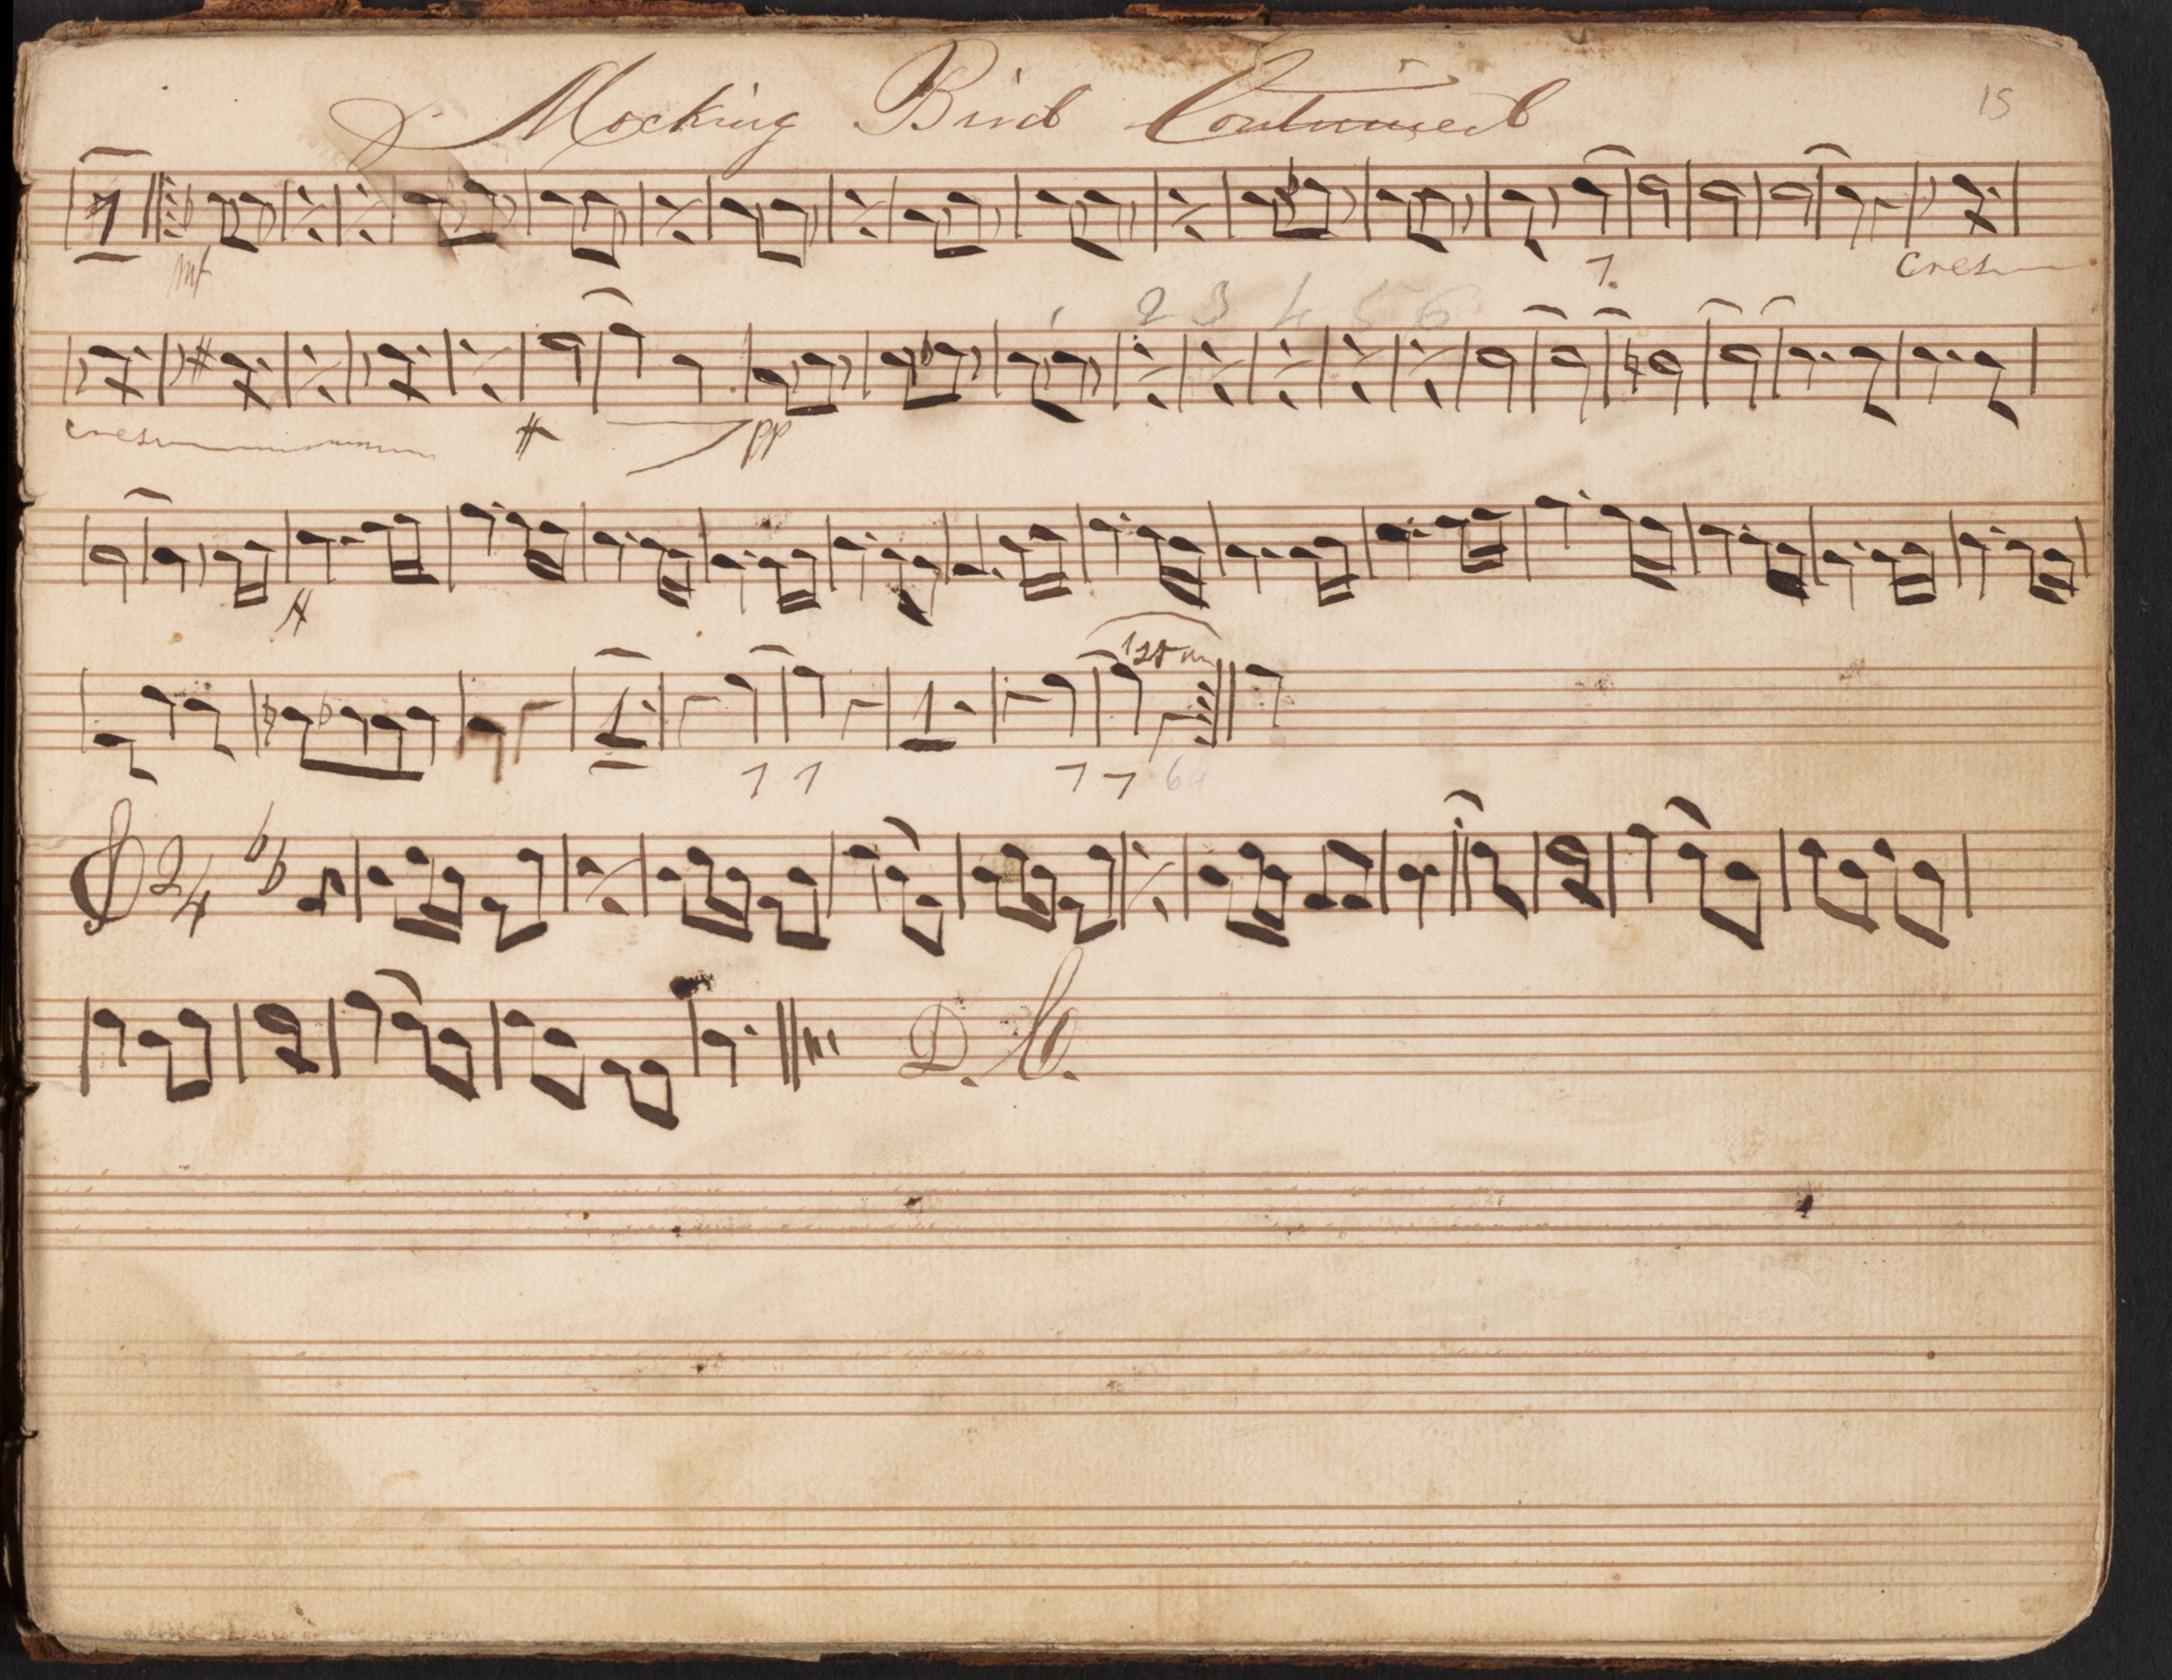 Mocking Bird Continued
15
mf
cres
1 2 3 4 5 6
cres
pp
1st
64
2/4
D. C.